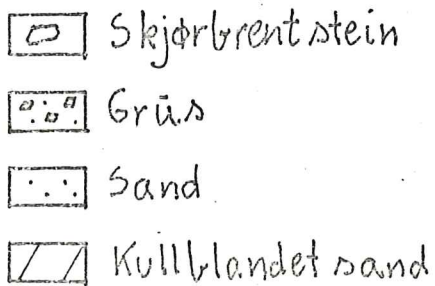 Skjørbrent stein
Grūs
Sand
Kullblandet sand